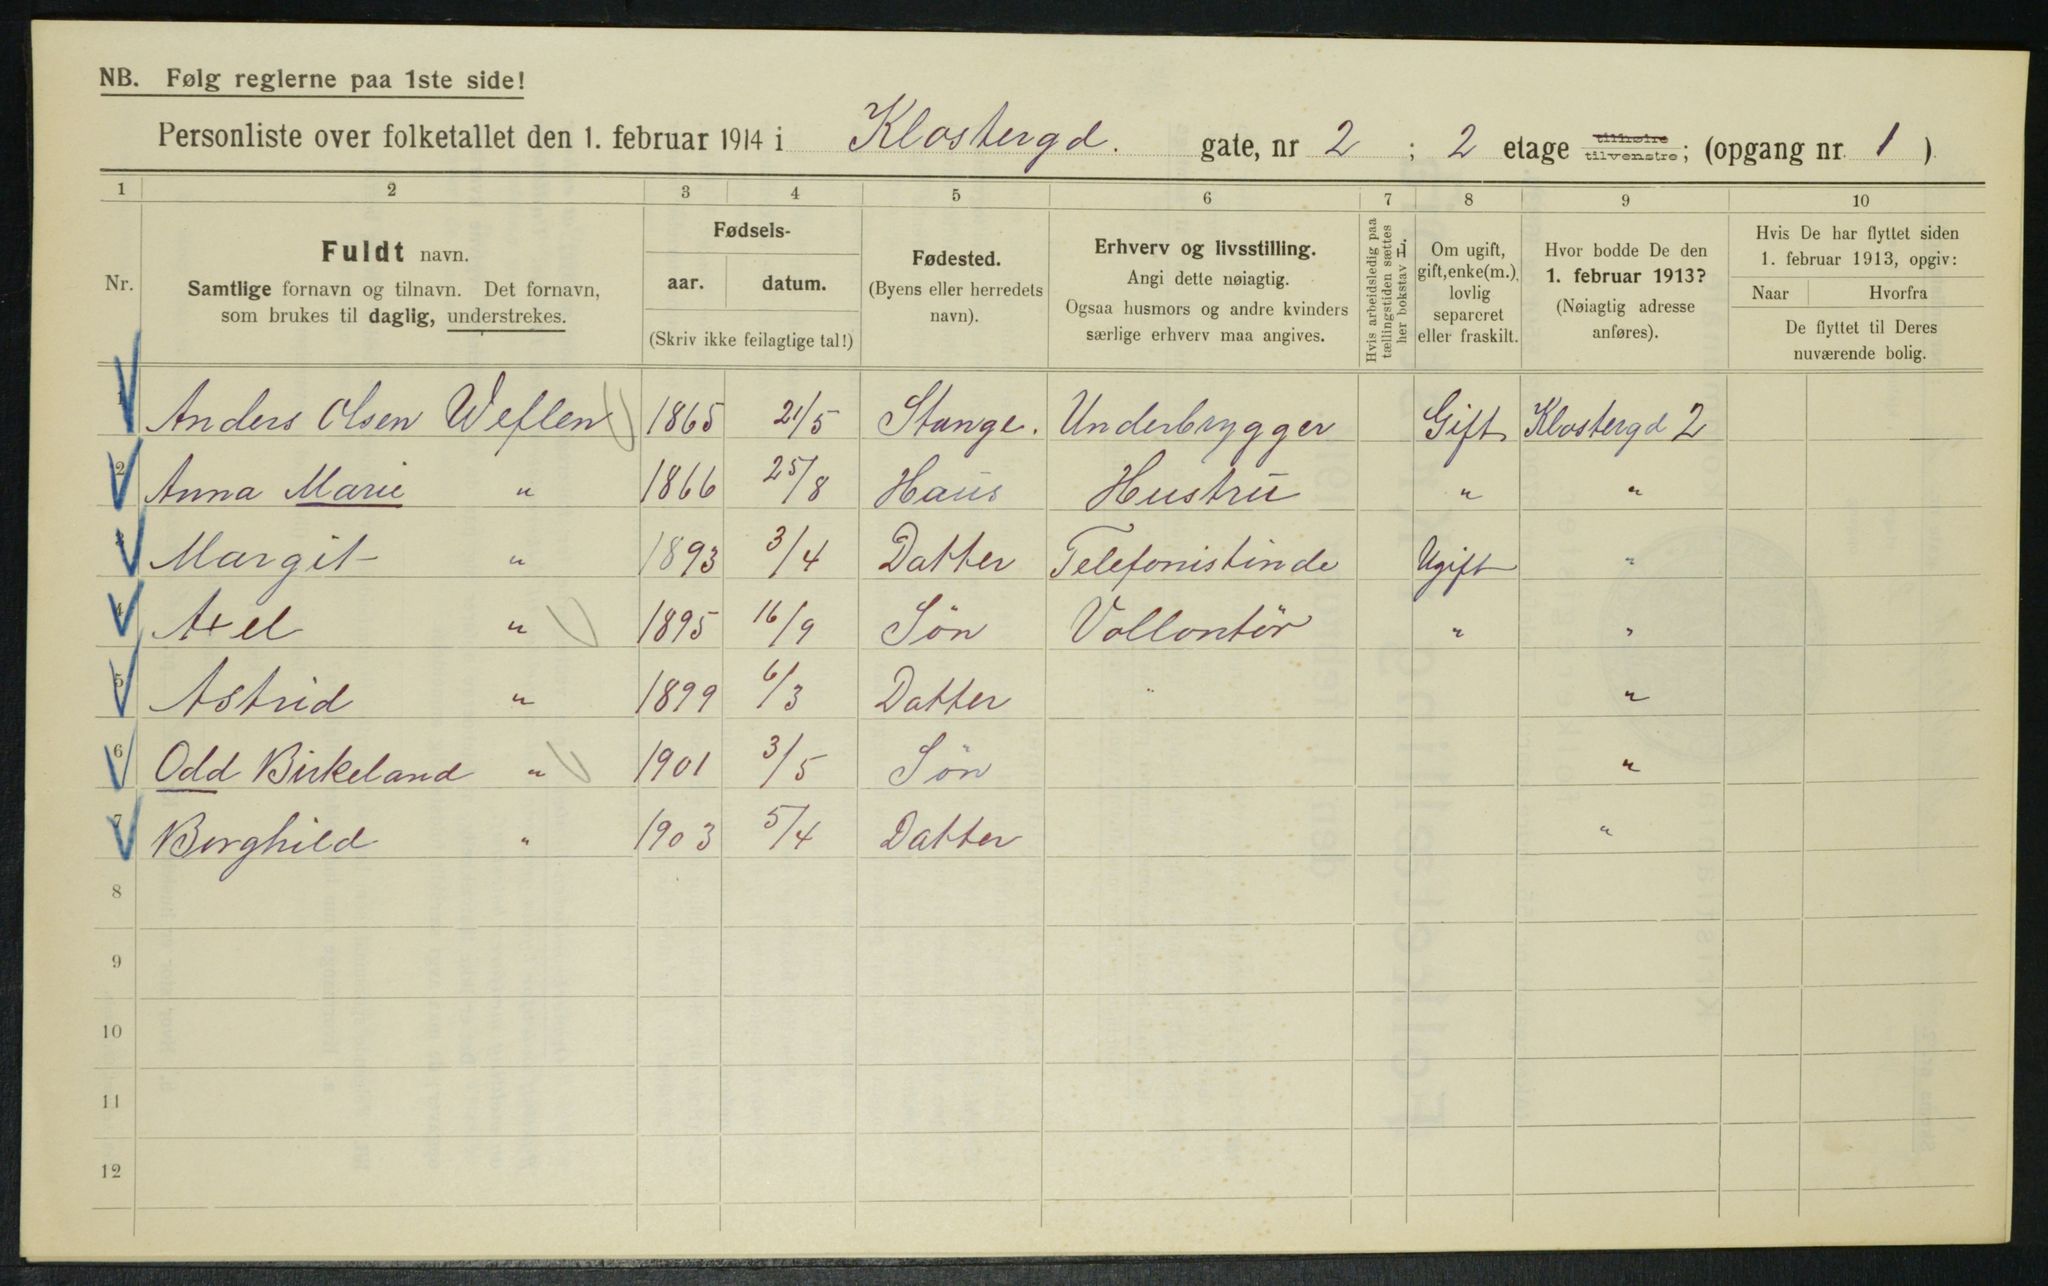 NB. Følg reglerne paa 1ste side!
Personliste over folketallet den 1. februar 1914 i Klostergd. gate, nr 2 ; 2 etage tilhøire tilvenstre; (opgang nr. 1 )
1 2 3 4 5 6 7 8 9 10
Nr.
Fuldt navn.
Samtlige fornavn og tilnavn. Det fornavn,
som brukes til daglig, understrekes.
Fødsels-
aar. datum.
(Skriv ikke feilagtige tal!)
Fødested.
(Byens eller herredets
navn).
Erhverv og livsstilling.
Angi dette nøiagtig.
Ogsaa husmors og andre kvinders
særlige erhverv maa angives.
Hvis arbeidsledig paa
tællingstiden sættes
her bokstav
Om ugift,
gift, enke(m.),
lovlig
separeret
eller fraskilt.
Hvor bodde De den
1. februar 1913?
(Nøiagtig adresse
anføres).
Hvis De har flyttet siden
1. februar 1913, opgiv:
Naar Hvorfra
De flyttet til Deres
nuværende bolig.
1 Anders Olsen Weflen 1865 21/5 Stange. Underbrygger Gift Klostergd 2
2 Anna Marie " 1866 25/8 Haus Hustru " "
Margit " 1893 3/4 Datter Telefonistinde Ugift "
4 Axel " 1895 16/9 Søn Vollontør " "
5 Astrid " 1899 6/3 Datter " "
6 Odd Birkeland " 1901 3/5 Søn "
7 Borghild " 1903 5/4 Datter "
8
9
10
11
12